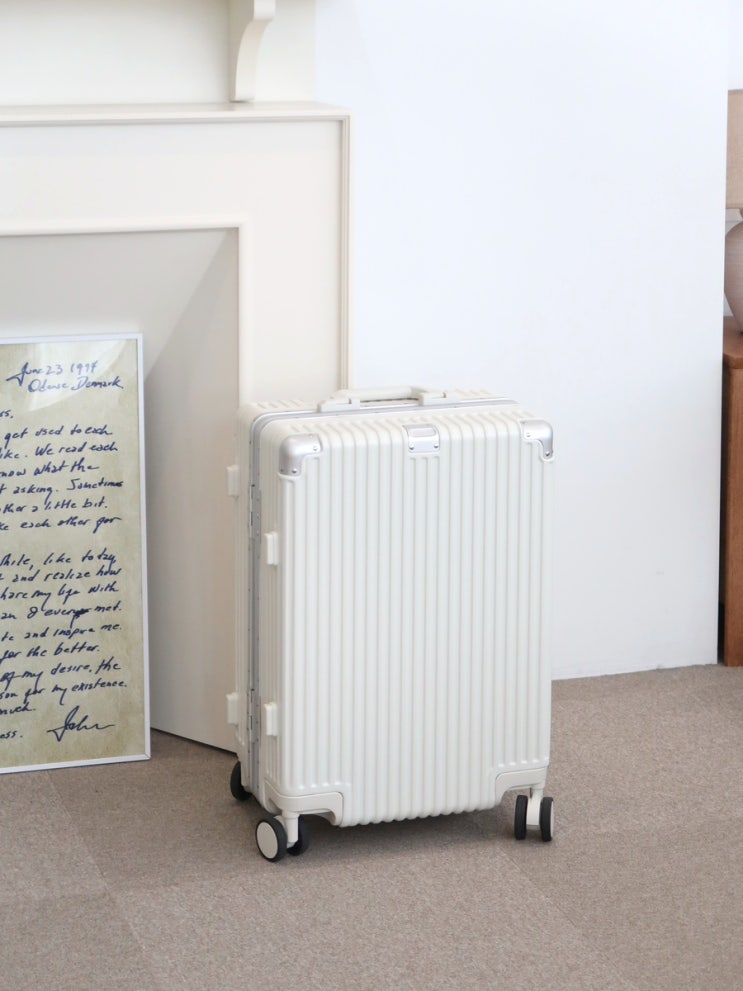 June 23 1994
Odense, Denmark
ss.
get used to each
like. We read each
now what the
t asking. Sometimes
ther a little bit.
ke each other for
while, like today,
and realize how
hare my life with
an I ever met.
te and inspire me.
for the better.
of my desire, the
son for my existence.
much.
John
ess.